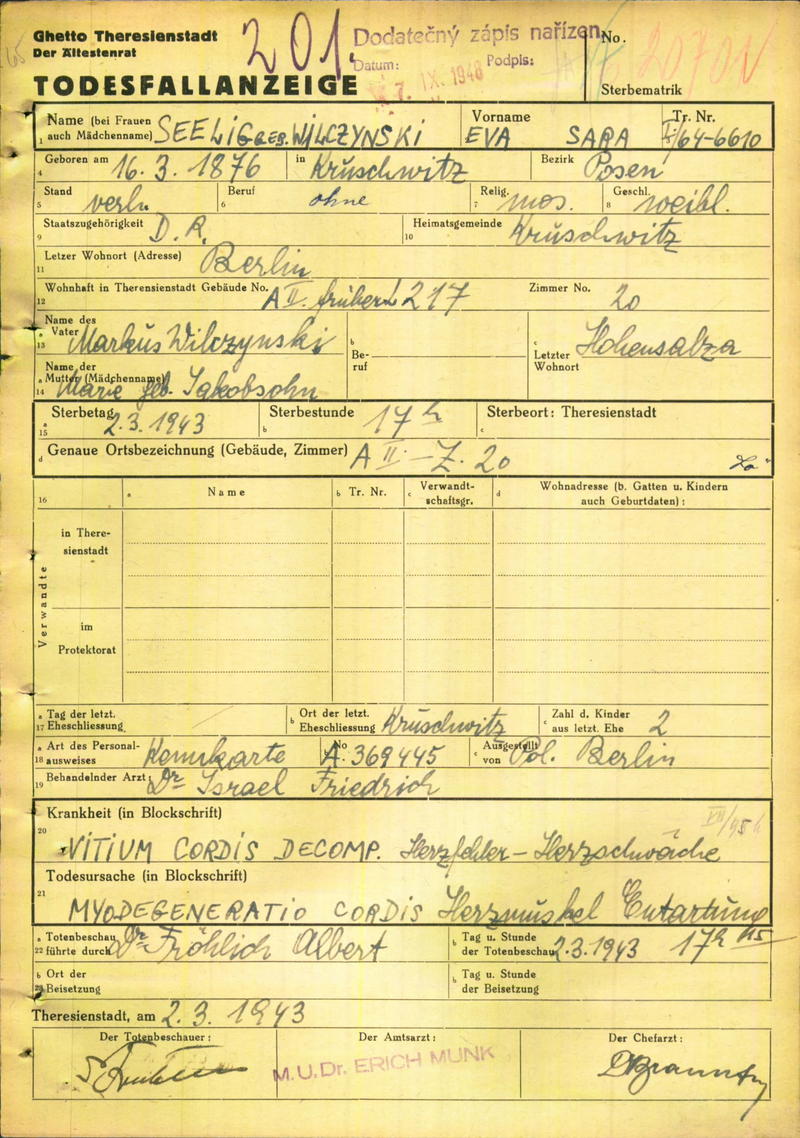 Ghetto Theresienstadt
Der Ältestenrat
201.
Dodatečný zápis nařízen
Datum: Podpis:
7. IX. 1948
No.
TODESFALLANZEIGE
Sterbematrik
1 Name (bei Frauen auch Mädchenname) SEELIG geb. WILCZYNSKI Vorname EVA SARA Tr. Nr. I/64-6610
4 Geboren am 16. 3. 1876 in Kruschwitz Bezirk Posen
5 Stand verh. 6 Beruf ohne 7 Relig. mos. 8 Geschl. weibl.
9 Staatszugehörigkeit D. R. 10 Heimatsgemeinde Kruschwitz
11 Letzer Wohnort (Adresse) Berlin
12 Wohnhaft in Theresienstadt Gebäude No. A II. früher L 217 Zimmer No. 20
13 Name des a Vater Markus Wilczynski b Beruf c Letzter Wohnort Hohensalza
14 Name der a Mutter (Mädchenname) Marie geb. Jakobsohn
15 a Sterbetag 2. 3. 1943 b Sterbestunde 17 h c Sterbeort: Theresienstadt
d Genaue Ortsbezeichnung (Gebäude, Zimmer) A II - Z. 20
16 a Name b Tr. Nr. c Verwandtschaftsgr. d Wohnadresse (b. Gatten u. Kindern auch Geburtdaten):
Verwandte
in Theresienstadt
im Protektorat
17 a Tag der letzt. Eheschliessung b Ort der letzt. Eheschliessung Kruschwitz c Zahl d. Kinder aus letzt. Ehe 2
18 a Art des Personalausweises Kennkarte b No A. 369445 c Ausgestellt von Pol. Berlin
19 Behandelnder Arzt: Dr Israel Friedrich
Krankheit (in Blockschrift)
20 VITIUM CORDIS DECOMP. Herzfehler - Herzschwäche
Todesursache (in Blockschrift)
21 MYODEGENERATIO CORDIS Herzmuskel Entartung
22 a Totenbeschau führte durch Dr Fröhlich Albert b Tag u. Stunde der Totenbeschau 2. 3. 1943 17 h 45
23 b Ort der Beisetzung b Tag u. Stunde der Beisetzung
Theresienstadt, am 2. 3. 1943
Der Totenbeschauer: Der Amtsarzt: Der Chefarzt:
M.U.Dr. ERICH MUNK